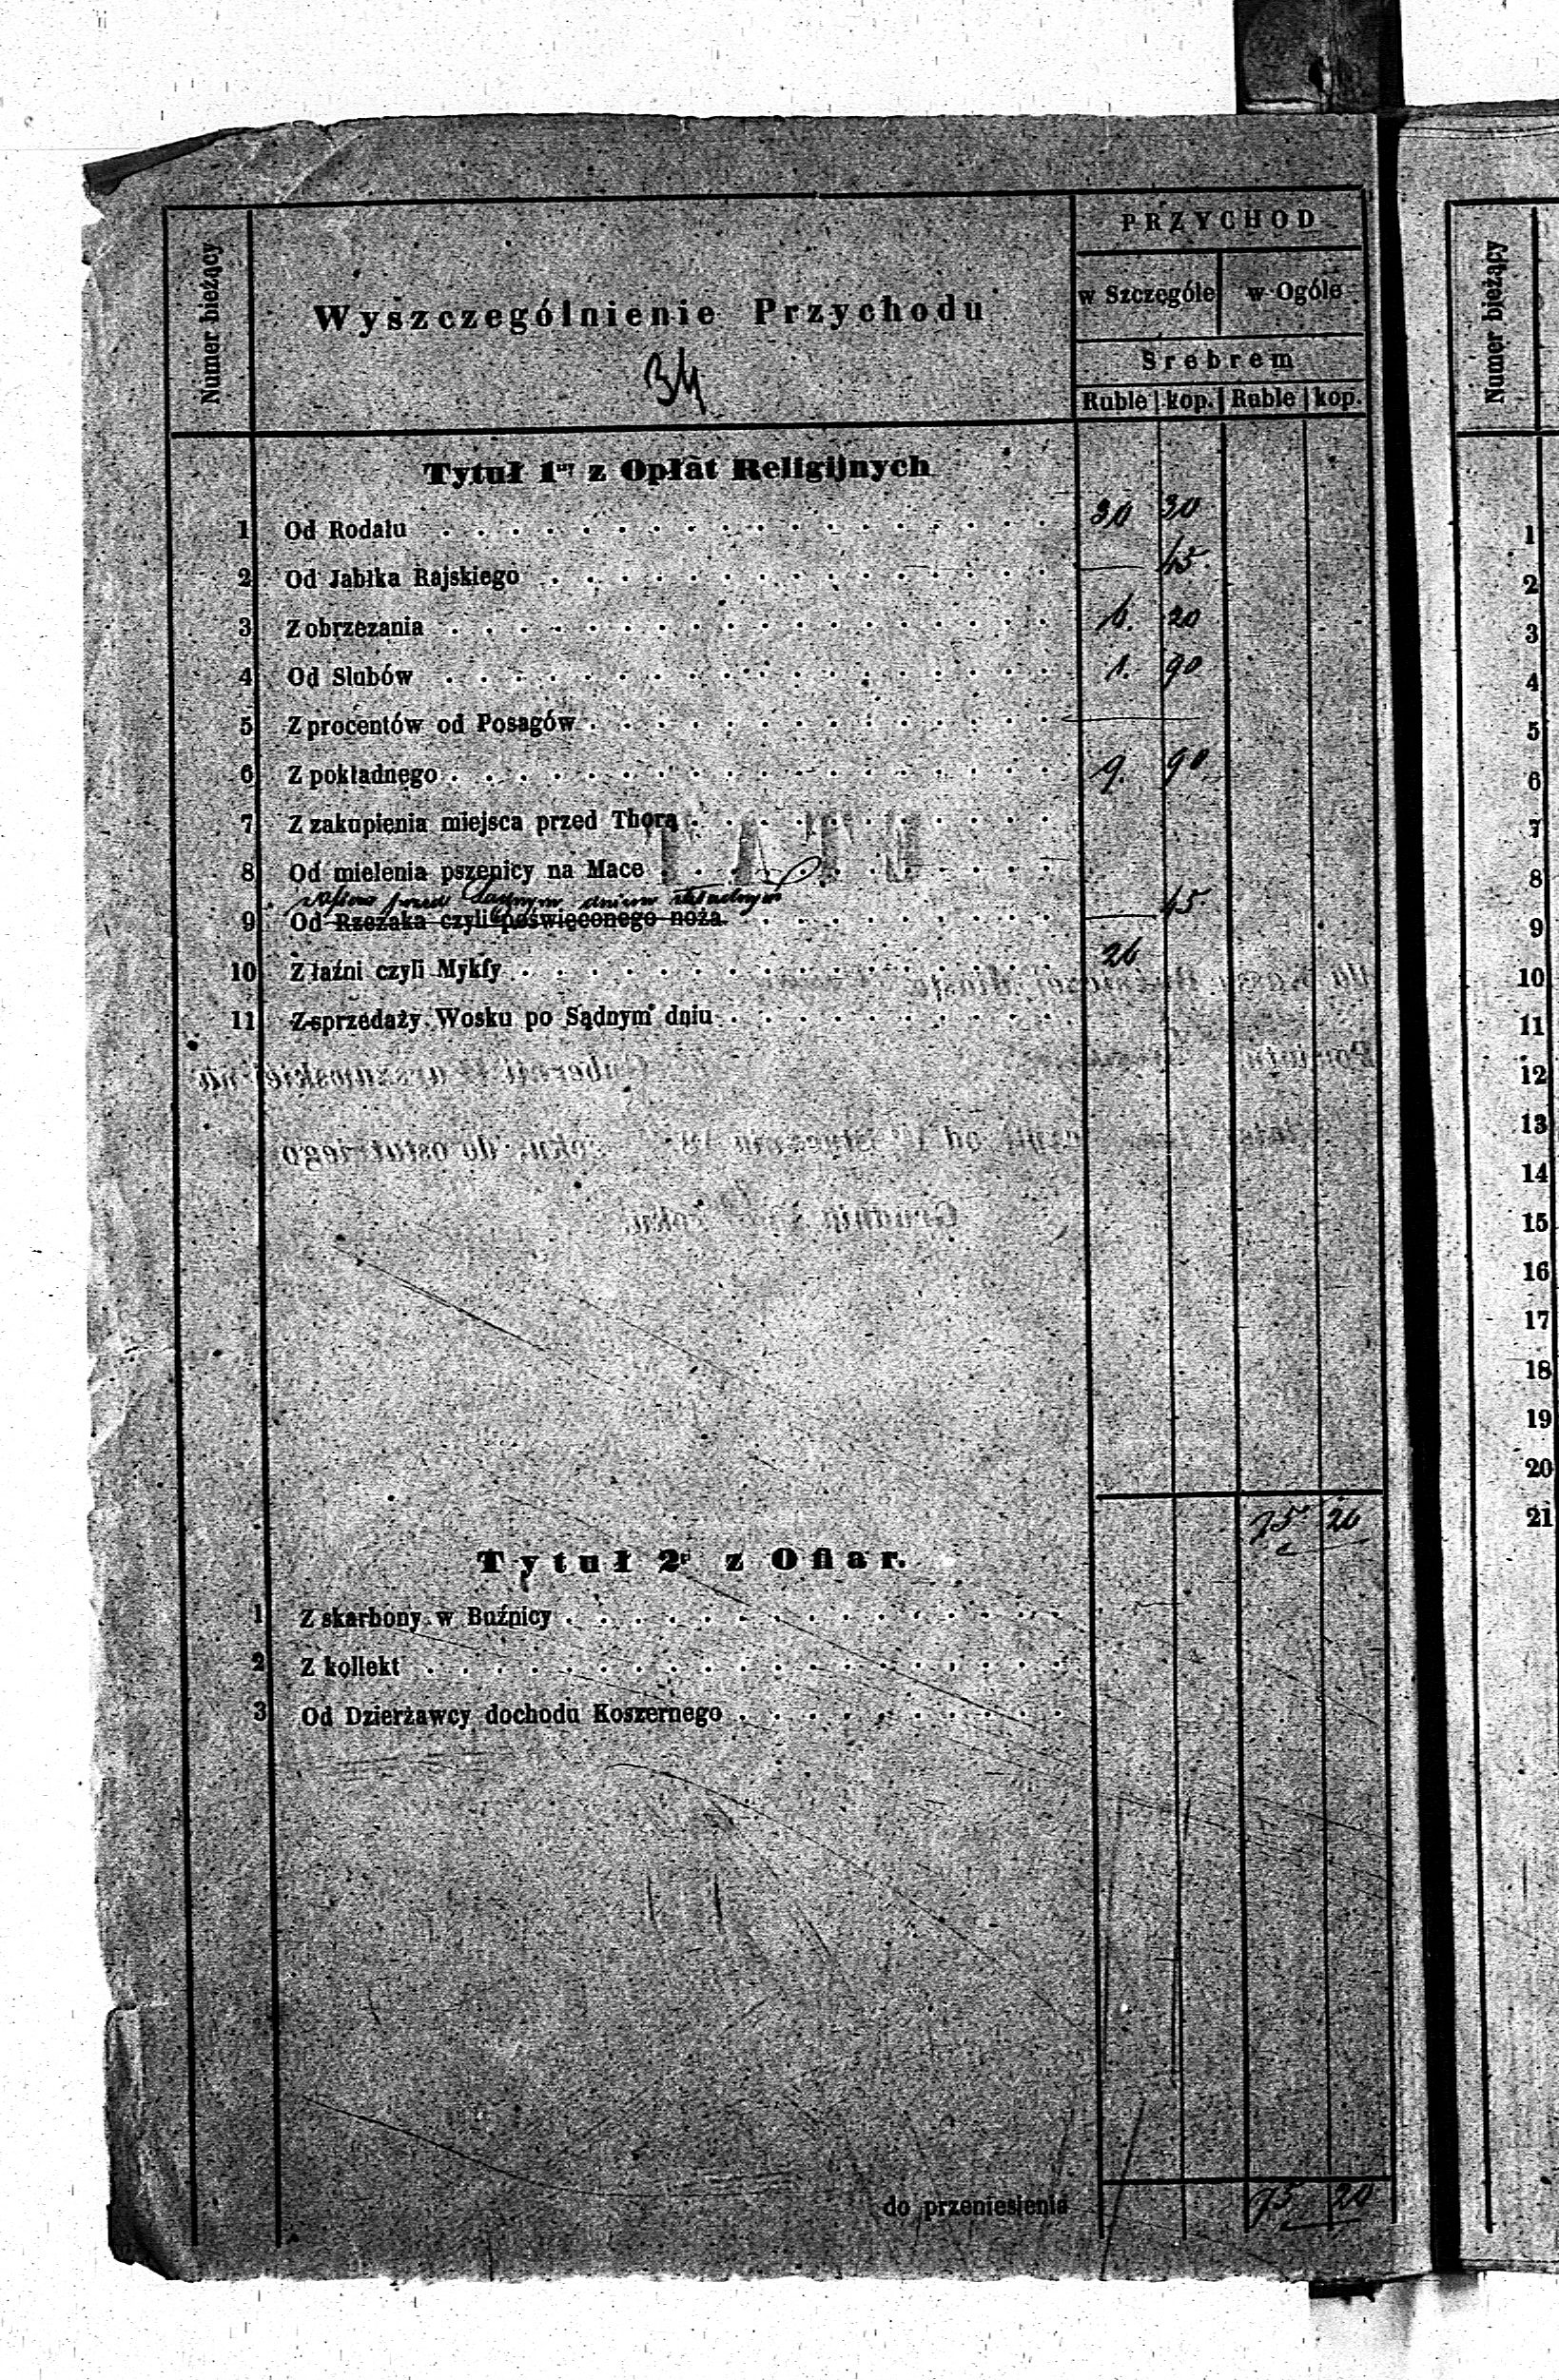 Numer bieżący
Wyszczególnienie Przychodu
34
PRZYCHOD
w Szczególe w Ogóle
Srebrem
Ruble kop. Ruble kop.
Tytuł 1ny z Opłat Religijnych
1 Od Rodału 30 30
2 Od Jabłka Rajskiego — 45
3 Z obrzezania 6. 20
4 Od Slubów 1. 90
5 Z procentów od Posagów —
6 Z pokładnego 9. 90
7 Z zakupienia miejsca przed Thorą
8 Od mielenia pszenicy na Mace
przed Sądnym dniem
9 Od Rzezaka czyli poświęconego noża — 45
10 Z łaźni czyli Mykfy 26
11 Z sprzedaży Wosku po Sądnym dniu
75 20
Tytuł 2gi z Ofiar.
1 Z skarbony w Buźnicy
2 Z kollekt
3 Od Dzierżawcy dochodu Koszernego
do przeniesienia 75 20
Numer bieżący
1
2
3
4
5
6
7
8
9
10
11
12
13
14
15
16
17
18
19
20
21